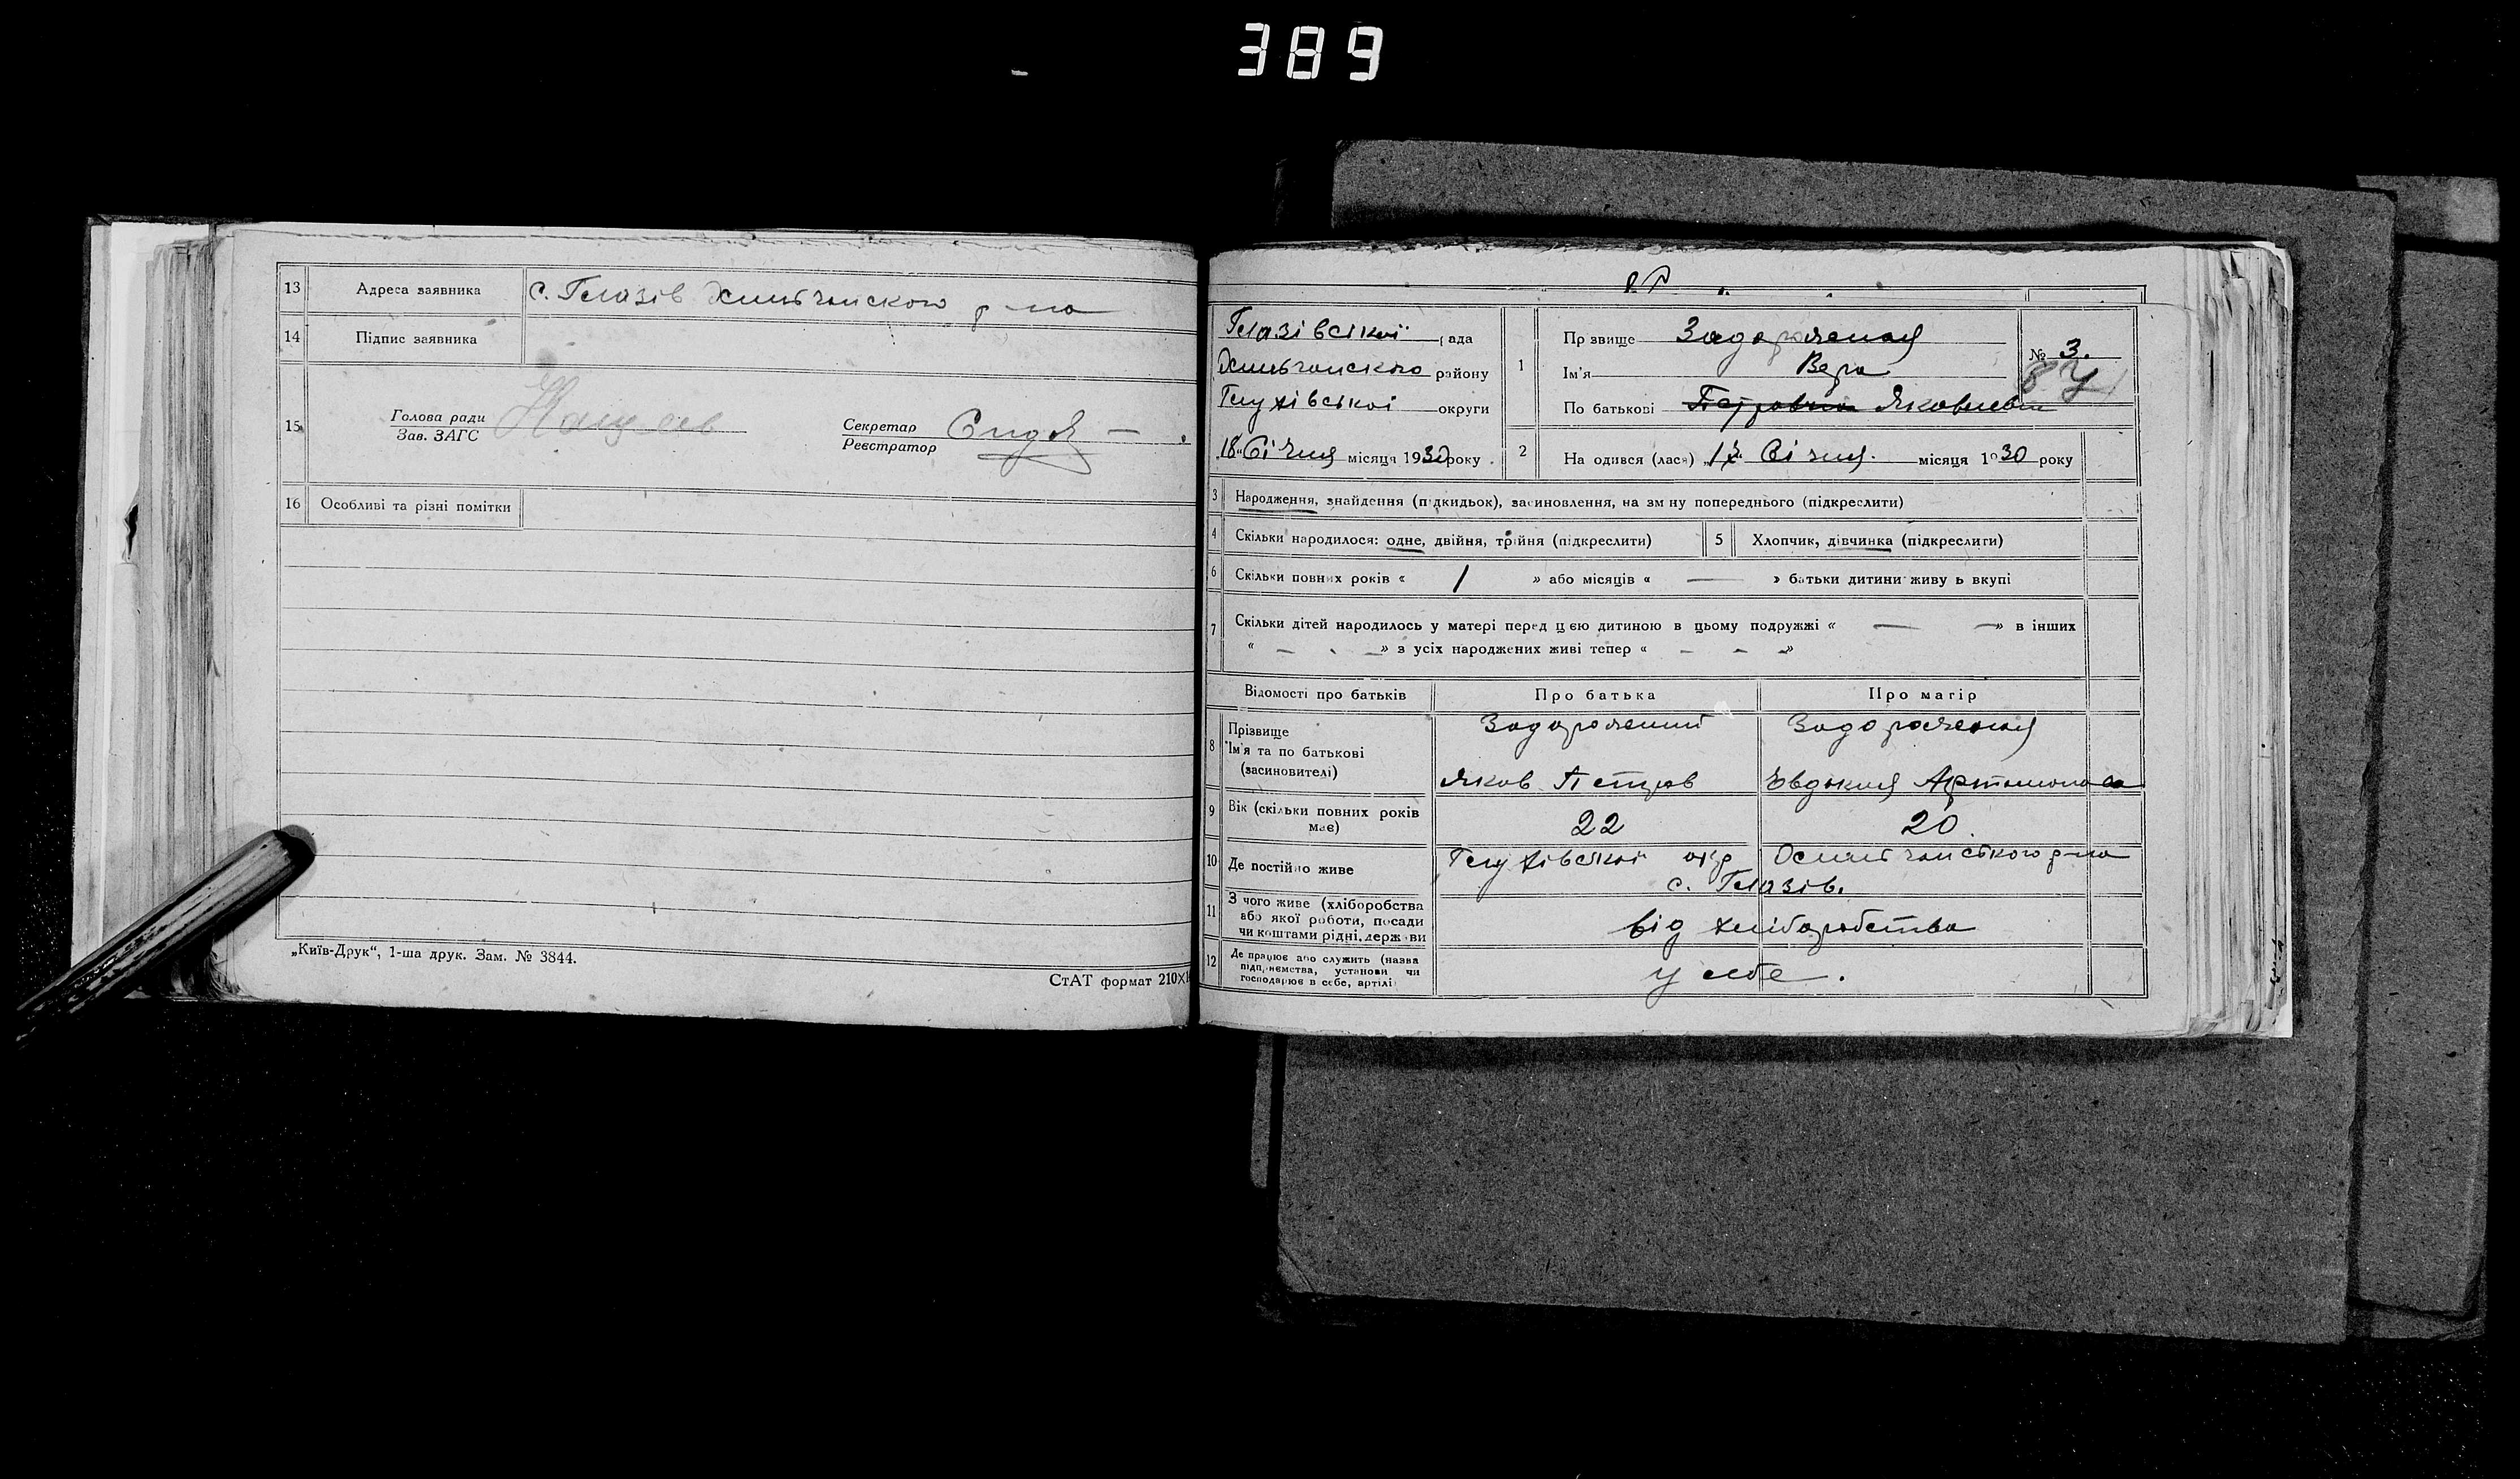 389
13 Адреса заявника с. Глазів Хильчанського р-на
14 Підпис заявника
15 Голова ради
Зав. ЗАГС
Секретар
Реєстратор
16 Особливі та різні помітки
„Київ-Друк“, 1-ша друк. Зам. № 3844.
СтАТ формат 210×
Глазівської рада
Хильчанського району
Глухівської округи
„18“ Січня місяця 1930 року
1 Прізвище Задорожная
Ім'я Вера
По батькові Петровна Яковлевна
№ 3.
2 Народився (лася) Січня місяця 1930 року
3 Народження, знайдення (підкидьок), засиновлення, на зміну попереднього (підкреслити)
4 Скільки народилося: одне, двійня, трійня (підкреслити) 5 Хлопчик, дівчинка (підкреслити)
6 Скільки повних років « 1 » або місяців « — » батьки дитини живуть вкупі
7 Скільки дітей народилось у матері перед цією дитиною в цьому подружжі « — —» в інших
« — — » з усіх народжених живі тепер « — — —»
Відомості про батьків Про батька Про матір
8 Прізвище Задорожний Задорожная
Ім'я та по батькові
(засиновителі) Яков Петров Евдокия Артамонова
9 Вік (скільки повних років має) 22 20
10 Де постійно живе Глухівської окр р-на
с. Глазів.
11 З чого живе (хліборобства
або якої роботи, посади
чи коштами рідні, держави
від хліборобства
12 Де працює або служить (назва
підприємства, установи чи
господарює в себе, артілі
у себе.